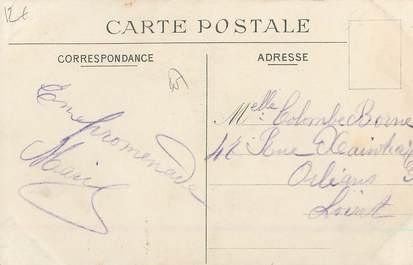 12€
CARTE POSTALE
CORRESPONDANCE
ADRESSE
En promenade
Marie
Melle Colombe Borne
42 Rue Xaintrailles
Orléans
Loiret